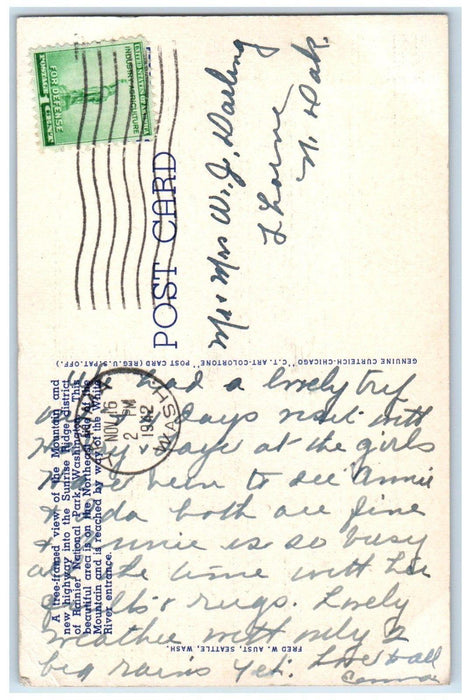 UNITED STATES OF AMERICA
INDUSTRY AGRICULTURE
FOR DEFENSE
POSTAGE 1 CENT
POST CARD
Mr + Mrs W. J. Darling
Thorne
N. Dak.
GENUINE CURTEICH-CHICAGO "C.T. ART-COLORTONE" POST CARD (REG. U.S. PAT. OFF.)
NOV 16
2 PM
1942
WASH
A tree-framed view of the Mountain and
new highway into the Sunrise Ridge district
of Rainier National Park, Washington. This
beautiful area is on the Northeast side of the
Mountain and is reached by way of the White
River entrance.
had a lovely trip
days visit with
days at the girls
been to see Annie
both are fine
+ is so busy
the time with her
quilts + rugs. Lovely
weather with only 2
big rains yet. Love to all
FRED W. AUST, SEATTLE, WASH.